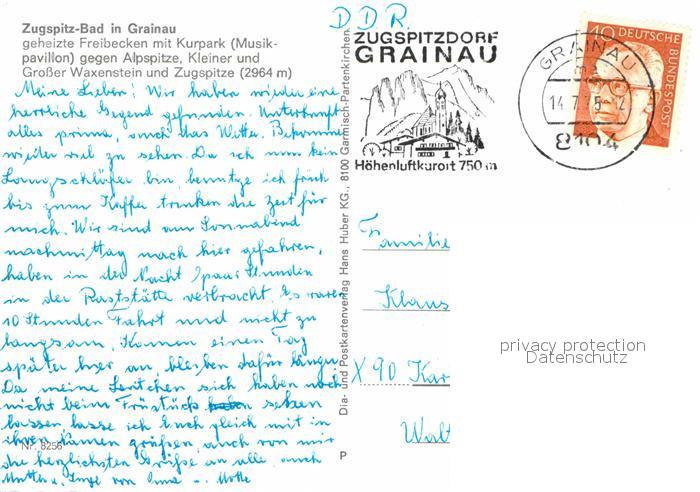 Zugspitz-Bad in Grainau
geheizte Freibecken mit Kurpark (Musik-
pavillon) gegen Alpspitze, Kleiner und
Großer Waxenstein und Zugspitze (2964 m)
Meine Lieben! Wir haben wieder eine
herrliche Gegend gefunden. Unterkunft
alles prima, auch das Wetter. Bekommen
wieder viel zu sehen. Da ich nun kein
Langschläfer bin, benutze ich früh
bis zum Kaffee trinken die Zeit für
mich. Wir sind am Sonnabend
nachmittag nach hier gefahren,
haben in der Nacht paar Stunden
in der Raststätte verbracht. Es waren
10 Stunden Fahrt und nicht zu
langsam. Kamen einen Tag
später hier an, bleiben dafür länger.
Da meine Leutchen sich haben noch
nicht beim Frühstück sehen
lassen, lasse ich Euch gleich mit in
ihren Namen grüßen, auch von mir
die herzlichsten Grüße an alle, auch
Mutter u. Inge von
Nr. 8256
Dia- und Postkartenverlag Hans Huber KG., 8100 Garmisch-Partenkirchen
P
DDR
ZUGSPITZDORF
GRAINAU
Höhenluftkurort 750 m
GRAINAU
14.7.75-12
8104
40 DEUTSCHE
BUNDESPOST
Familie
Klaus
X 90 Kar
Walt
privacy protection
Datenschutz